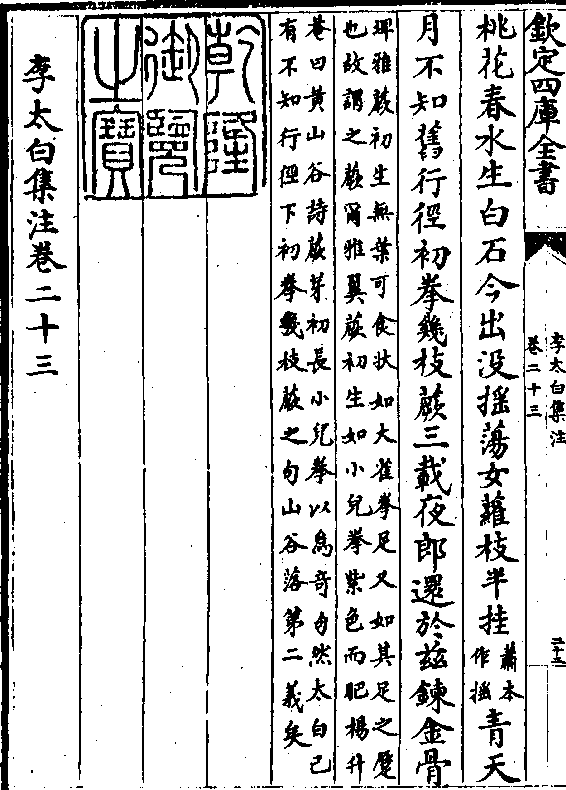 欽定四庫全書
李太白集注
卷二十三
桃花春水生白石今出没搖蕩女蘿枝半挂蕭本作搖青天
月不知舊行徑初拳幾枝蕨三載夜郎還於兹鍊金骨
埤雅蕨初生無葉可食狀如大雀拳足又如其足之蹷
也故謂之蕨爾雅翼蕨初生如小兒拳紫色而肥楊升
菴曰黄山谷詩蕨芽初長小兒拳以為奇句然太白已
有不知行徑下初拳幾枝蕨之句山谷落第二義矣
乾隆
御覽
之寶
李太白集注卷二十三